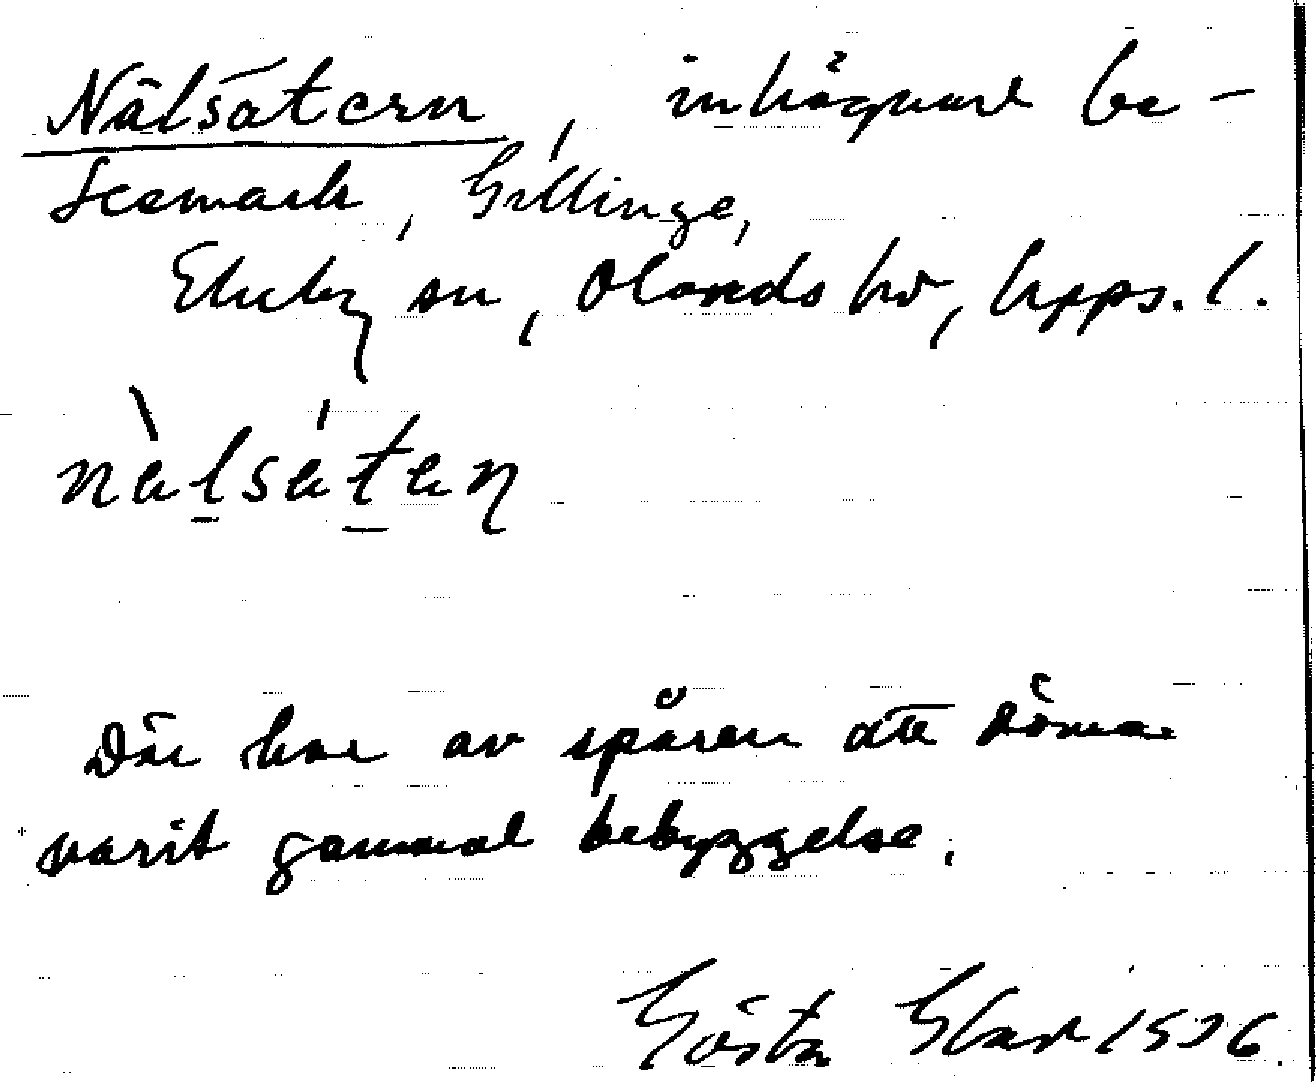 Nälsätern, inhägnad be-
tesmark, Gillinge,
Ekeby sn, Olands hd, Upps. l.
nàlsá́tan
Där har av spåren att döma
varit gammal bebyggelse.
Gösta